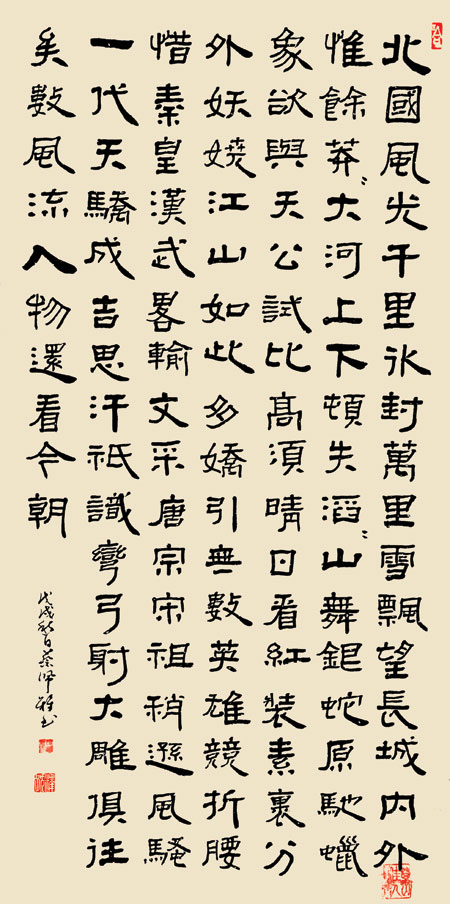 北國風光千里冰封萬里雪飄望長城内外
惟餘莽〻大河上下頓失滔〻山舞銀蛇原馳蠟
象欲與天公試比高須晴日看紅裝素裹分
外妖嬈江山如此多嬌引無數英雄競折腰
惜秦皇漢武畧輸文采唐宗宋祖稍遜風騷
一代天驕成吉思汗祇識彎弓射大雕俱往
矣數風流人物還看今朝
戊戌秋日蔡佩